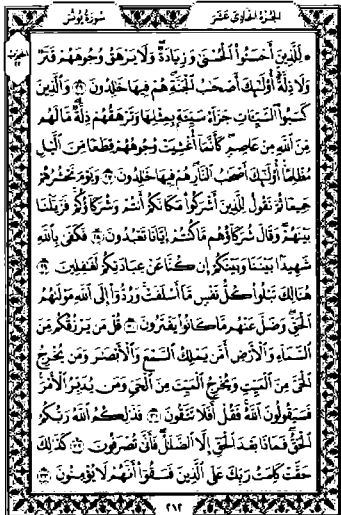 سُورَةُ يُونُسَ
الجُزْءُ الحَادِيَ عَشَرَ
* لِّلَّذِينَ أَحْسَنُوا۟ ٱلْحُسْنَىٰ وَزِيَادَةٌ وَلَا يَرْهَقُ وُجُوهَهُمْ قَتَرٌ
وَلَا ذِلَّةٌ أُو۟لَٰٓئِكَ أَصْحَٰبُ ٱلْجَنَّةِ هُمْ فِيهَا خَٰلِدُونَ ٢٦ وَٱلَّذِينَ
كَسَبُوا۟ ٱلسَّيِّـَٔاتِ جَزَآءُ سَيِّئَةٍۭ بِمِثْلِهَا وَتَرْهَقُهُمْ ذِلَّةٌ مَّا لَهُم
مِّنَ ٱللَّهِ مِنْ عَاصِمٍ كَأَنَّمَآ أُغْشِيَتْ وُجُوهُهُمْ قِطَعًا مِّنَ ٱلَّيْلِ
مُظْلِمًا أُو۟لَٰٓئِكَ أَصْحَٰبُ ٱلنَّارِ هُمْ فِيهَا خَٰلِدُونَ ٢٧ وَيَوْمَ نَحْشُرُهُمْ
جَمِيعًا ثُمَّ نَقُولُ لِلَّذِينَ أَشْرَكُوا۟ مَكَانَكُمْ أَنتُمْ وَشُرَكَآؤُكُمْ فَزَيَّلْنَا
بَيْنَهُمْ وَقَالَ شُرَكَآؤُهُم مَّا كُنتُمْ إِيَّانَا تَعْبُدُونَ ٢٨ فَكَفَىٰ بِٱللَّهِ
شَهِيدًۢا بَيْنَنَا وَبَيْنَكُمْ إِن كُنَّا عَنْ عِبَادَتِكُمْ لَغَٰفِلِينَ ٢٩
هُنَالِكَ تَبْلُوا۟ كُلُّ نَفْسٍ مَّآ أَسْلَفَتْ وَرُدُّوٓا۟ إِلَى ٱللَّهِ مَوْلَىٰهُمُ
ٱلْحَقِّ وَضَلَّ عَنْهُم مَّا كَانُوا۟ يَفْتَرُونَ ٣٠ قُلْ مَن يَرْزُقُكُم مِّنَ
ٱلسَّمَآءِ وَٱلْأَرْضِ أَمَّن يَمْلِكُ ٱلسَّمْعَ وَٱلْأَبْصَٰرَ وَمَن يُخْرِجُ
ٱلْحَىَّ مِنَ ٱلْمَيِّتِ وَيُخْرِجُ ٱلْمَيِّتَ مِنَ ٱلْحَىِّ وَمَن يُدَبِّرُ ٱلْأَمْرَ
فَسَيَقُولُونَ ٱللَّهُ فَقُلْ أَفَلَا تَتَّقُونَ ٣١ فَذَٰلِكُمُ ٱللَّهُ رَبُّكُمُ
ٱلْحَقُّ فَمَاذَا بَعْدَ ٱلْحَقِّ إِلَّا ٱلضَّلَٰلُ فَأَنَّىٰ تُصْرَفُونَ ٣٢ كَذَٰلِكَ
حَقَّتْ كَلِمَتُ رَبِّكَ عَلَى ٱلَّذِينَ فَسَقُوٓا۟ أَنَّهُمْ لَا يُؤْمِنُونَ ٣٣
٢١٢